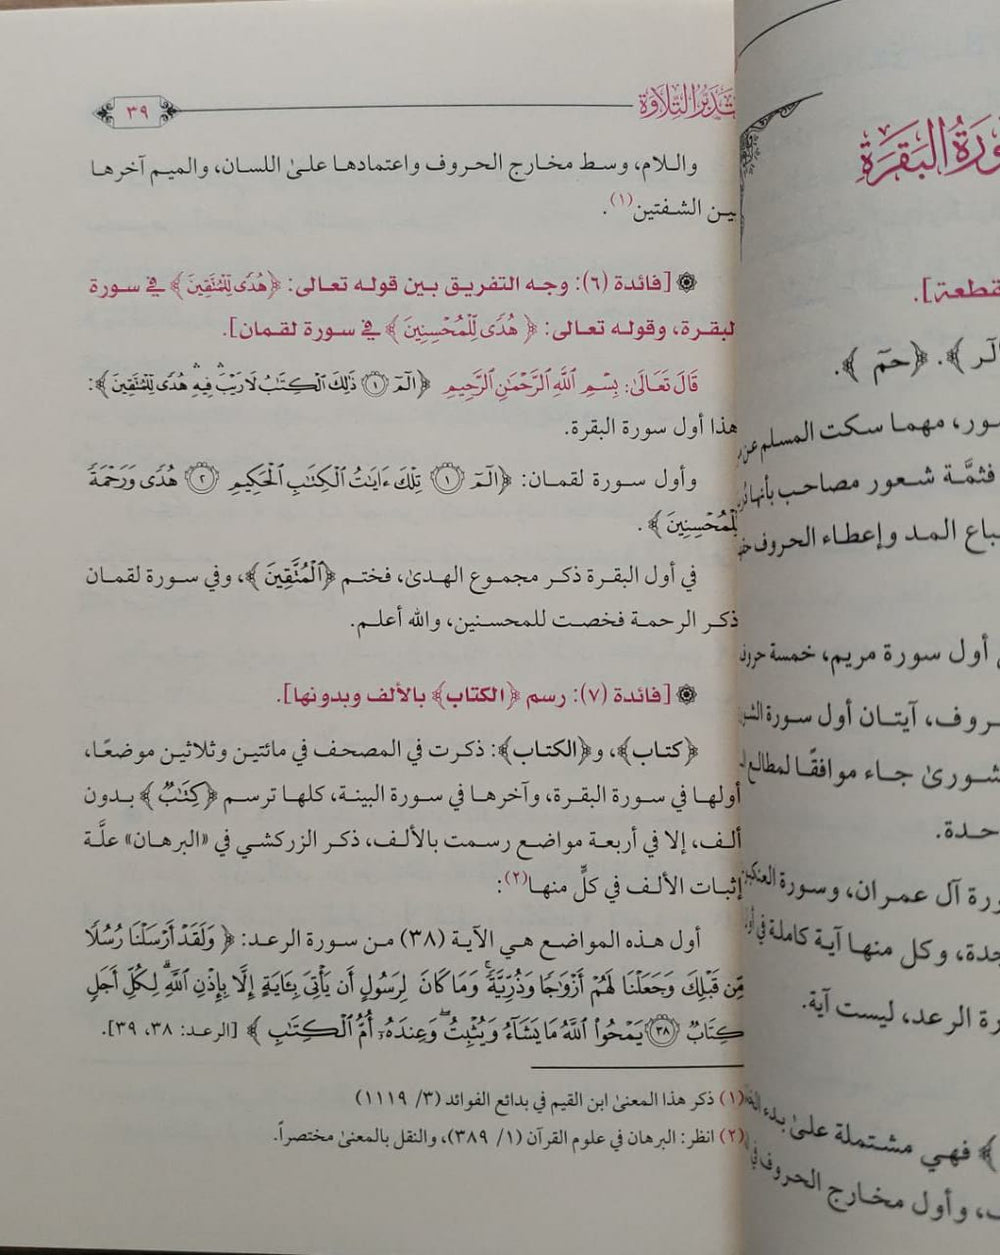 سورة البقرة
قطعة].
الٓر ﴾. ﴿حمٓ ﴾.
ور، مهما سكت المسلم عن
فثمَّة شعور مصاحب بأنها
باع المد وإعطاء الحروف
أول سورة مريم، خمسة حروف
روف، آيتان أول سورة
شورىٰ جاء موافقًا لمطالع
حدة.
ورة آل عمران، وسورة
جدة، وكل منها آية كاملة في
رة الرعد، ليست آية.
﴾ فهي مشتملة علىٰ بدء
، وأول مخارج الحروف
تدبر التلاوة
٣٩
واللام، وسط مخارج الحروف واعتمادها علىٰ اللسان، والميم آخرها
بين الشفتين(١).
[فائدة (٦): وجه التفريق بين قوله تعالى: ﴿هُدٗى لِّلۡمُتَّقِينَ﴾ في سورة
البقرة، وقوله تعالى: ﴿ هُدٗى لِّلۡمُحۡسِنِينَ ﴾ في سورة لقمان].
قَالَ تَعَالَىٰ: بِسْمِ اللَّهِ الرَّحْمَٰنِ الرَّحِيمِ ﴿الٓمٓ ١ ذَٰلِكَ ٱلۡكِتَٰبُ لَا رَيۡبَۛ فِيهِۛ هُدٗى لِّلۡمُتَّقِينَ﴾:
هذا أول سورة البقرة.
وأول سورة لقمان: ﴿الٓمٓ ١ تِلۡكَ ءَايَٰتُ ٱلۡكِتَٰبِ ٱلۡحَكِيمِ ٢ هُدٗى وَرَحۡمَةٗ
لِّلۡمُحۡسِنِينَ ﴾.
في أول البقرة ذكر مجموع الهدىٰ، فختم ﴿ٱلۡمُتَّقِينَ ﴾، وفي سورة لقمان
ذكر الرحمة فخصت للمحسنين، والله أعلم.
[فائدة (٧): رسم ﴿الكتاب﴾ بالألف وبدونها].
﴿كتاب﴾، و﴿الكتاب﴾: ذكرت في المصحف في مائتين وثلاثين موضعًا،
أولها في سورة البقرة، وآخرها في سورة البينة، كلها ترسم ﴿كِتَٰبٞ﴾ بدون
ألف، إلا في أربعة مواضع رسمت بالألف، ذكر الزركشي في «البرهان» علَّة
إثبات الألف في كلٍّ منها(٢):
أول هذه المواضع هي الآية (٣٨) من سورة الرعد: ﴿ وَلَقَدۡ أَرۡسَلۡنَا رُسُلٗا
مِّن قَبۡلِكَ وَجَعَلۡنَا لَهُمۡ أَزۡوَٰجٗا وَذُرِّيَّةٗۚ وَمَا كَانَ لِرَسُولٍ أَن يَأۡتِيَ بِـَٔايَةٍ إِلَّا بِإِذۡنِ ٱللَّهِۗ لِكُلِّ أَجَلٖ
كِتَابٞ ٣٨ يَمۡحُواْ ٱللَّهُ مَا يَشَآءُ وَيُثۡبِتُۖ وَعِندَهُۥٓ أُمُّ ٱلۡكِتَٰبِ ﴾ [الرعد: ٣٨، ٣٩].
(١) ذكر هذا المعنىٰ ابن القيم في بدائع الفوائد (٣/ ١١١٩)
(٢) انظر: البرهان في علوم القرآن (١/ ٣٨٩)، والنقل بالمعنىٰ مختصراً.